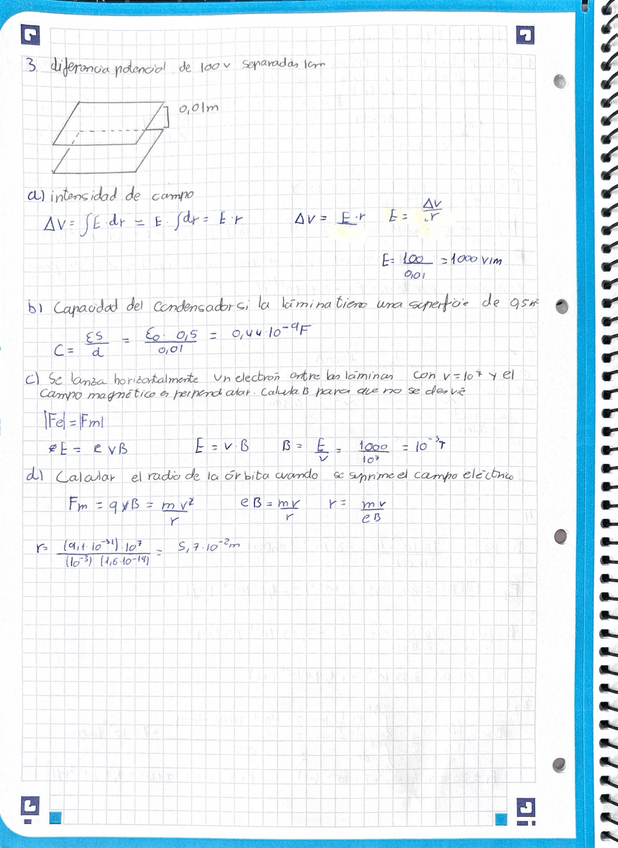 3 diferencia potencial de 100v separadas 1cm
0,01m
a) intensidad de campo
ΔV = ∫E · dr = E · ∫dr = E · r ΔV = E · r E = ΔV/r
E = 100/0,01 = 1000 V/m
b) Capacidad del condensador si la lámina tiene una superficie de 0,5m²
C = εS/d = ε₀ · 0,5/0,01 = 0,44 · 10⁻⁹F
c) Se lanza horizontalmente un electrón entre las láminas con v = 10⁷ y el
campo magnético es perpend al ar. Calcula B para que no se desvíe
|Fe| = |Fm|
eE = e v B E = v · B B = E/v = 1000/10⁷ = 10⁻³T
d) Calcular el radio de la órbita cuando se suprime el campo eléctrico
Fm = q v B = m v²/r eB = mv/r r = mv/eB
r = (9,1 · 10⁻³¹) 10⁷/(10⁻³) (1,6 · 10⁻¹⁹) = 5,7 · 10⁻² m